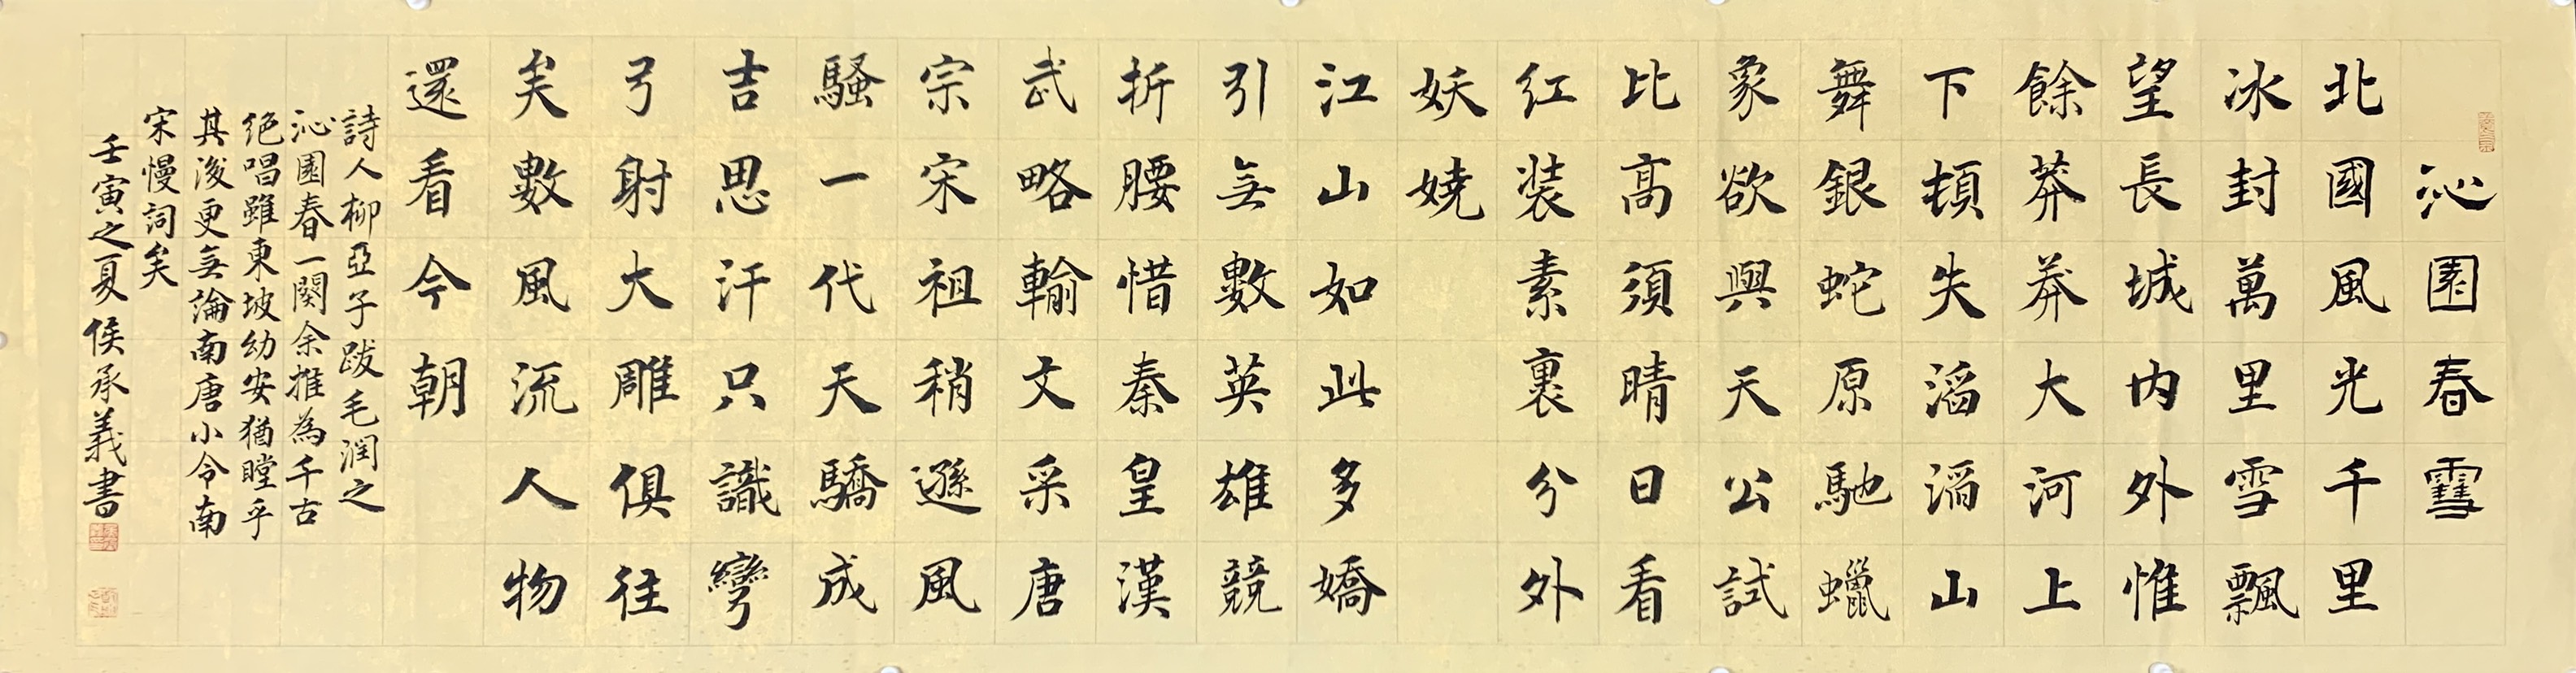 沁園春雪
北國風光千里
冰封萬里雪飄
望長城内外惟
餘莽莽大河上
下頓失滔滔山
舞銀蛇原馳蠟
象欲與天公試
比高須晴日看
紅装素裹分外
妖嬈
江山如此多嬌
引無數英雄競
折腰惜秦皇漢
武略輸文采唐
宗宋祖稍遜風
騷一代天驕成
吉思汗只識彎
弓射大雕俱往
矣數風流人物
還看今朝
詩人柳亞子跋毛潤之
沁園春一闋余推為千古
絶唱雖東坡幼安猶瞠乎
其後更無論南唐小令南
宋慢詞矣
壬寅之夏侯承義書